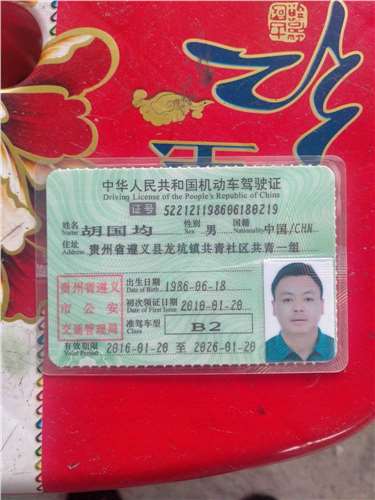 中华人民共和国机动车驾驶证
Driving License of the People's Republic of China
证号 522121198606180219
姓名 Name 胡国均 性别 Sex 男 国籍 Nationality 中国/CHN
住址 Address 贵州省遵义县龙坑镇共青社区共青一组
贵州省遵义
市公安
交通管理局
出生日期 Date of Birth 1986-06-18
初次领证日期 Date of First Issue 2010-01-20
准驾车型 Class B2
有效期限 Valid Period 2016-01-20 至 2026-01-20